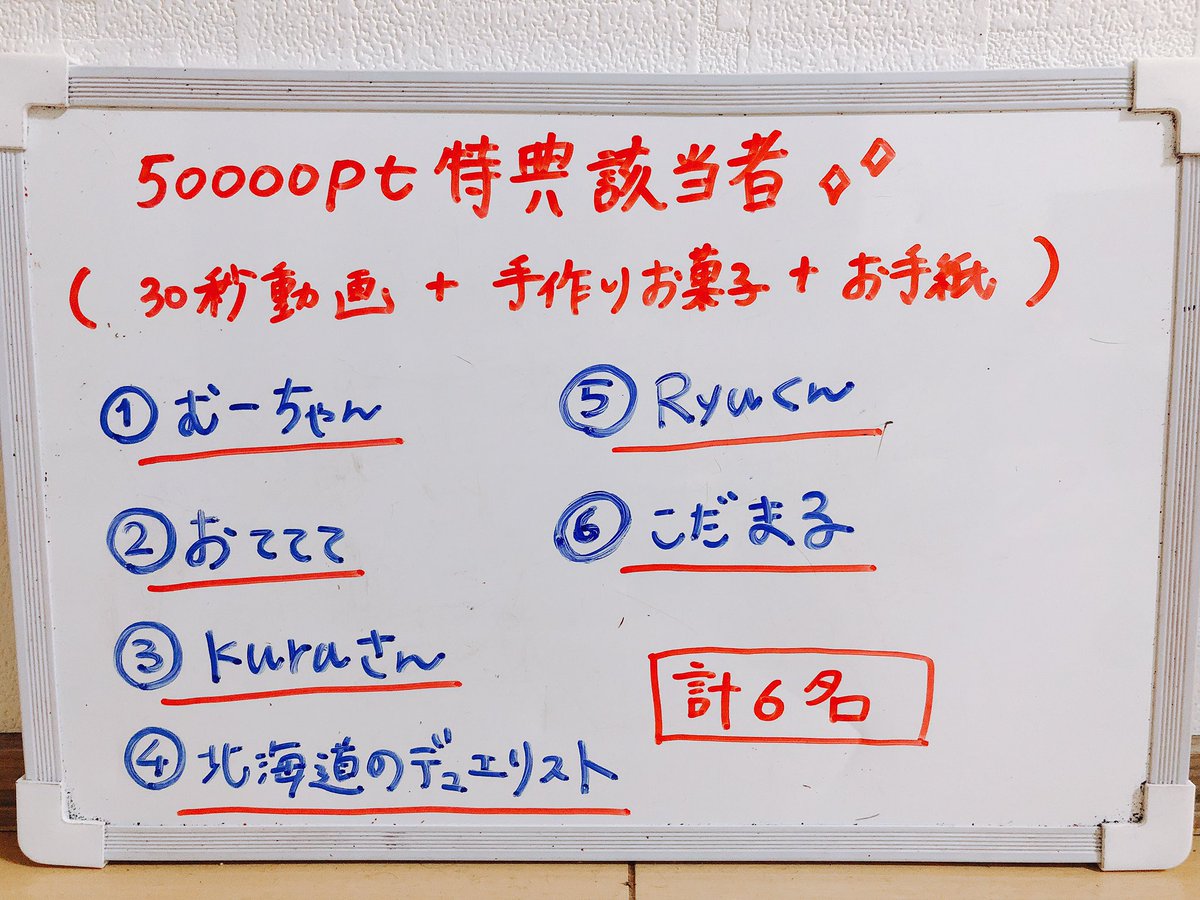 50000pt 特典該当者
( 30秒動画 + 手作りお菓子 + お手紙 )
① むーちゃん
② おててて
③ kuraさん
④ 北海道のデュエリスト
⑤ Ryuくん
⑥ こだまる
計6名